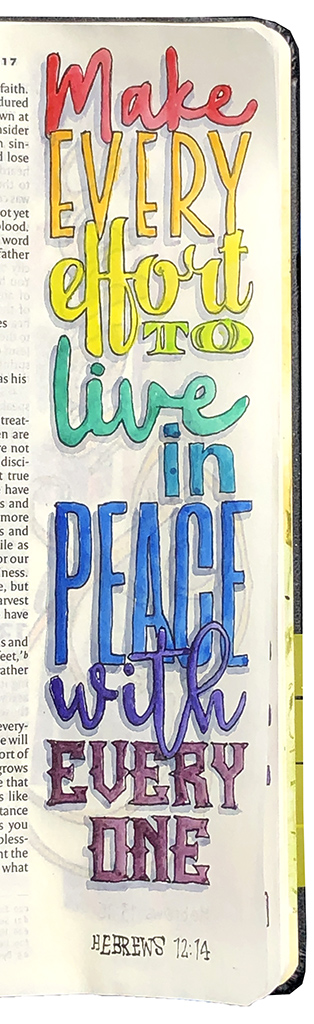 17
faith.
dured
wn at
nsider
n sin-
d lose
ot yet
blood.
word
father
es
as his
treat-
en are
re not
disci-
t true
have
s and
more
s and
ile as
or our
ness.
e, but
arvest
have
s and
feet,'b
rather
every-
e will
ort of
grows
e that
s like
tance
s you
bless-
nt the
what
Make
EVERY
effort
TO
live
in
PEACE
with
EVERY
ONE
HEBREWS 12:14